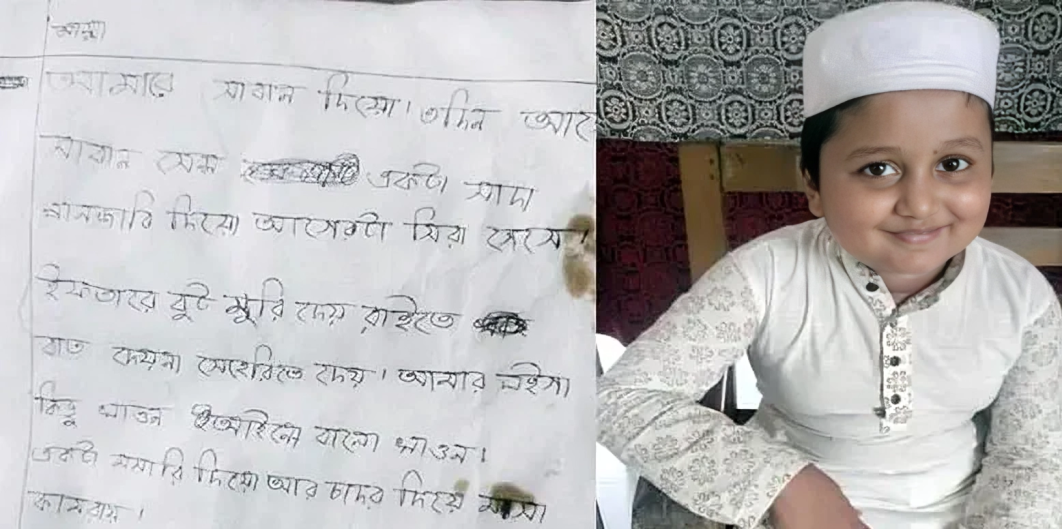 আম্মা
আমারে সাবান দিয়ো। ৩দিন আগে
সাবান সেস একটা সাদা
পানজাবি দিয়ো আগেরটা সিরা গেসে।
ইফতারে বুট মুরি দেয় রাইতে
বাত দেয়না সেহেরিতে দেয়। আমার লইগা
কিছু খাওন আইলে বালো খাওন।
একটা মসারি দিয়ো আর চাদর দিয়ো মসা
কামরায়।